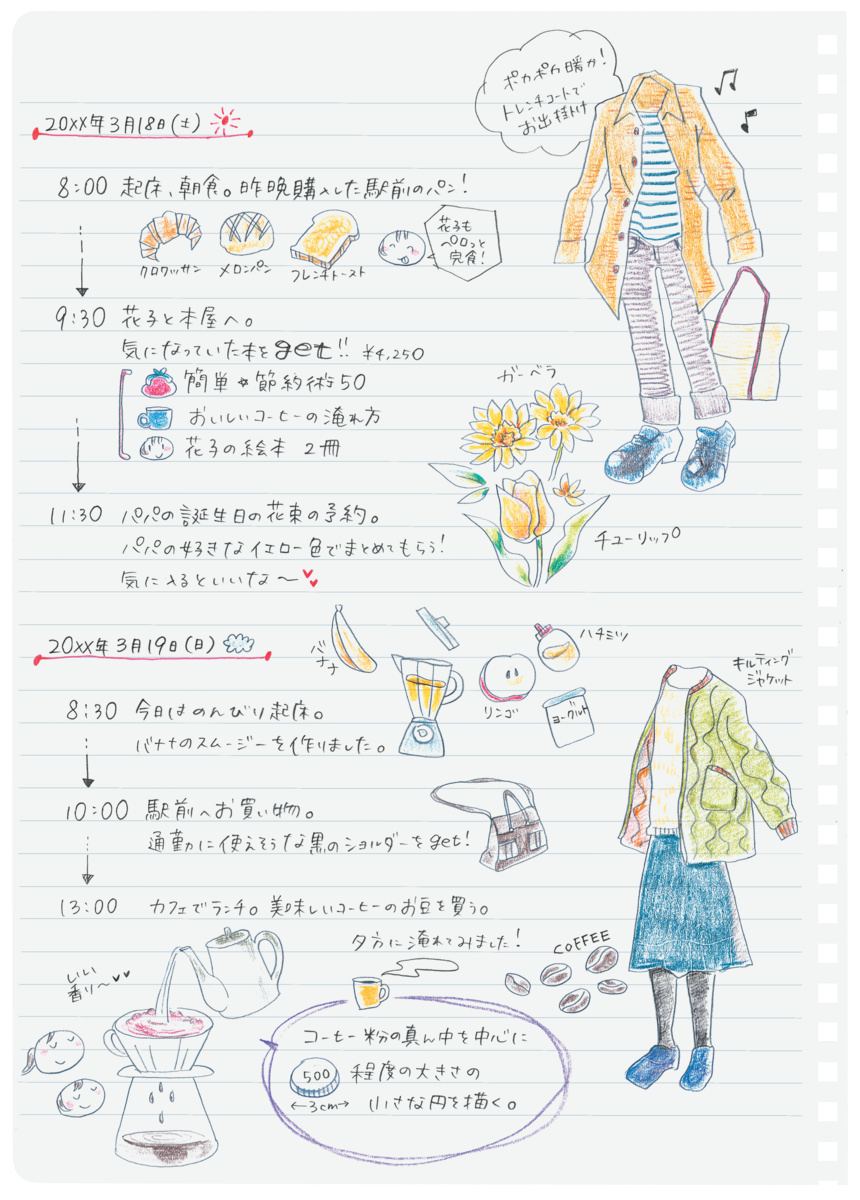 ポカポカ暖か!
トレンチコートで
お出掛け
20XX年3月18日(土)
8:00 起床、朝食。昨晩購入した駅前のパン!
クロワッサン
メロンパン
フレンチトースト
花子も
ペロっと
完食!
9:30 花子と本屋へ。
気になっていた本をget!! ¥4,250
簡単*節約術50
おいしいコーヒーの淹れ方
花子の絵本 2冊
ガーベラ
チューリップ
11:30 パパの誕生日の花束の予約。
パパの好きなイエロー色でまとめてもらう!
気に入るといいな〜
20XX年3月19日(日)
バナナ
リンゴ
ハチミツ
ヨーグルト
キルティング
ジャケット
8:30 今日はのんびり起床。
バナナのスムージーを作りました。
10:00 駅前へお買い物。
通勤に使えそうな黒のショルダーをget!
13:00 カフェでランチ。美味しいコーヒーのお豆を買う。
夕方に淹れてみました!
COFFEE
いい
香り〜
コーヒー粉の真ん中を中心に
500 程度の大きさの
←3cm→ 小さな円を描く。